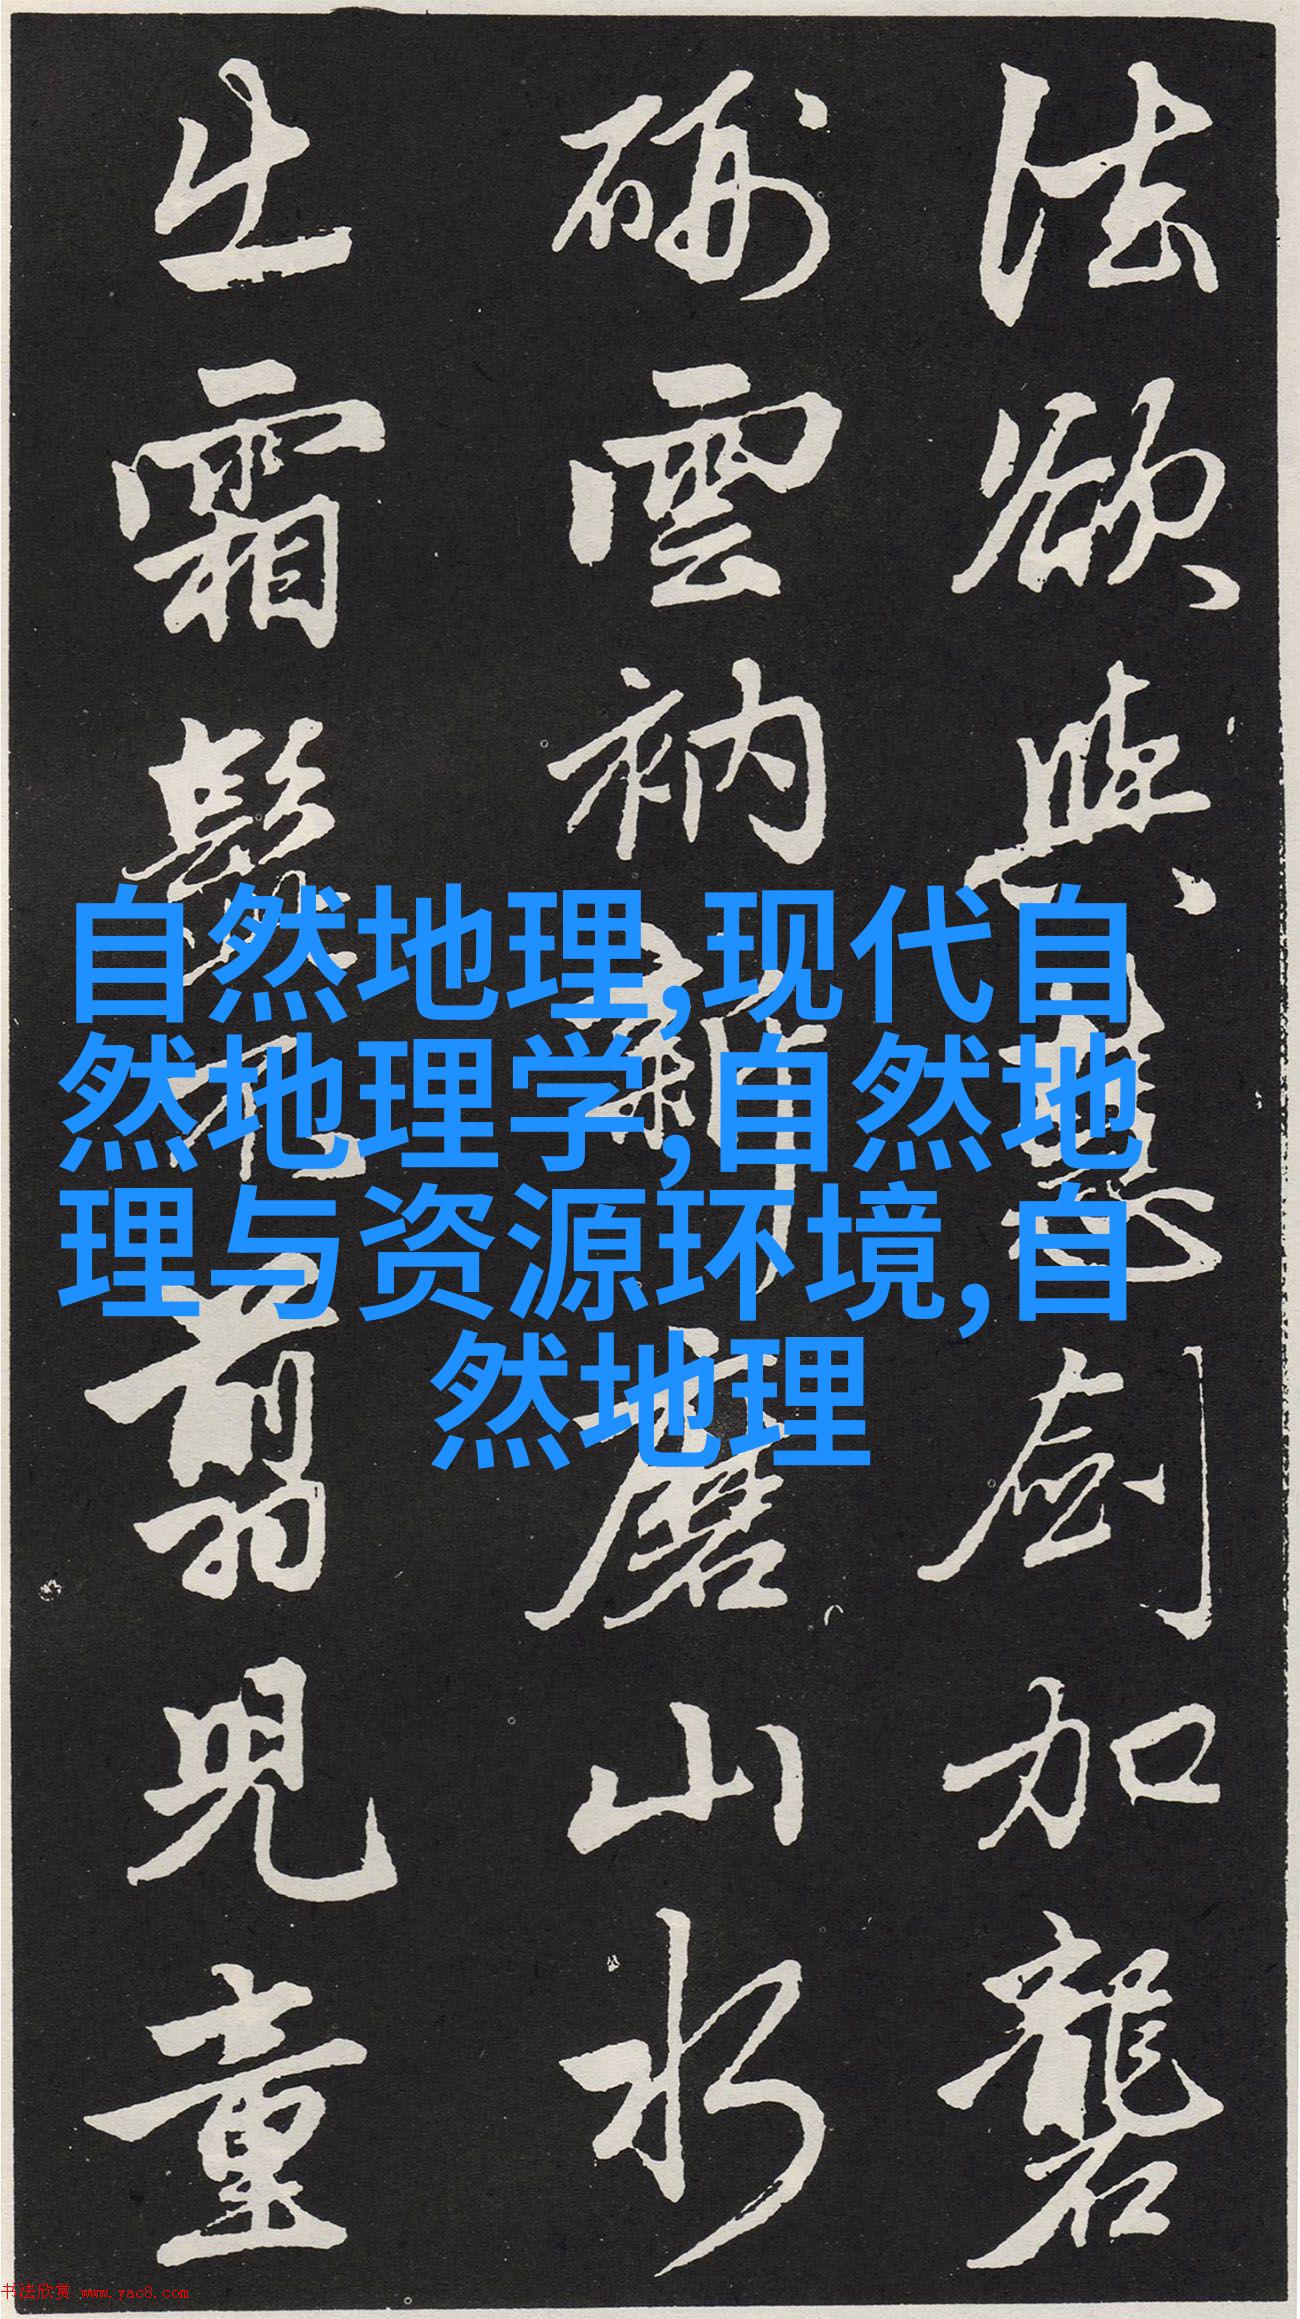 自然地理,现代自
然地理学,自然地
理与资源环境,自
然地理
法欲與慧劍加礱
硎雲衲新磨山水
出霜翦兒童
书法欣赏 www.yac8.com